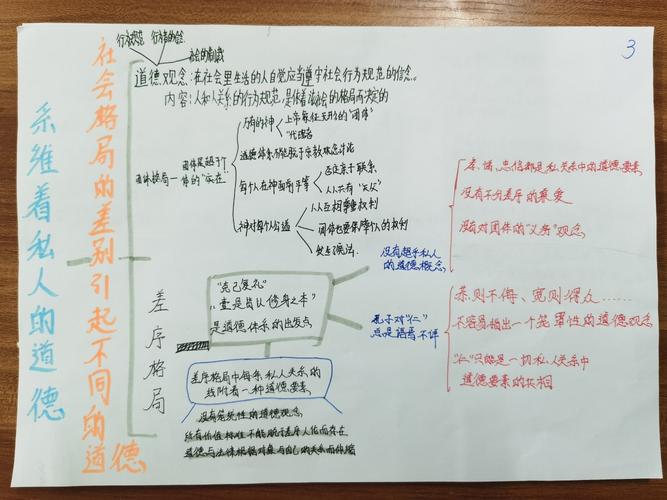 系维着私人的道德
社会格局的差别引起不同的道德
3
行为规范 行为者的信念
社会的制裁
道德观念:在社会里生活的人自觉应当遵守社会行为规范的信念。
内容:人和人关系的行为规范,是依着社会的格局而决定的
团体格局
万有的神
上帝
"代理者
道德体系不能脱于宗教观念讨论
每个人在神面前平等
否定亲子联系
人人共有"天父"
神对每个人公道
人人互相尊重权利
团体也要保障个人的权利
差序格局
"克己复礼"
"壹是皆以修身之本"
是道德体系的出发点
差序格局中每条私人关系的
线附着一种道德要素
没有笼统性的道德观念
所有价值标准不能脱于差序人伦而存在
道德与法律根据对象与自己的关系而伸缩
没有超乎私人
的道德概念
孔子对"仁"
总是语焉不详
孝、悌、忠信都是私关系中的道德要素
没有不分差序的兼爱
没有对团体的"义务"观念
恭则不侮、宽则得众……
不容易指出一个笼罩性的道德观念
"仁"只能是一切私人关系中
道德要素的共相